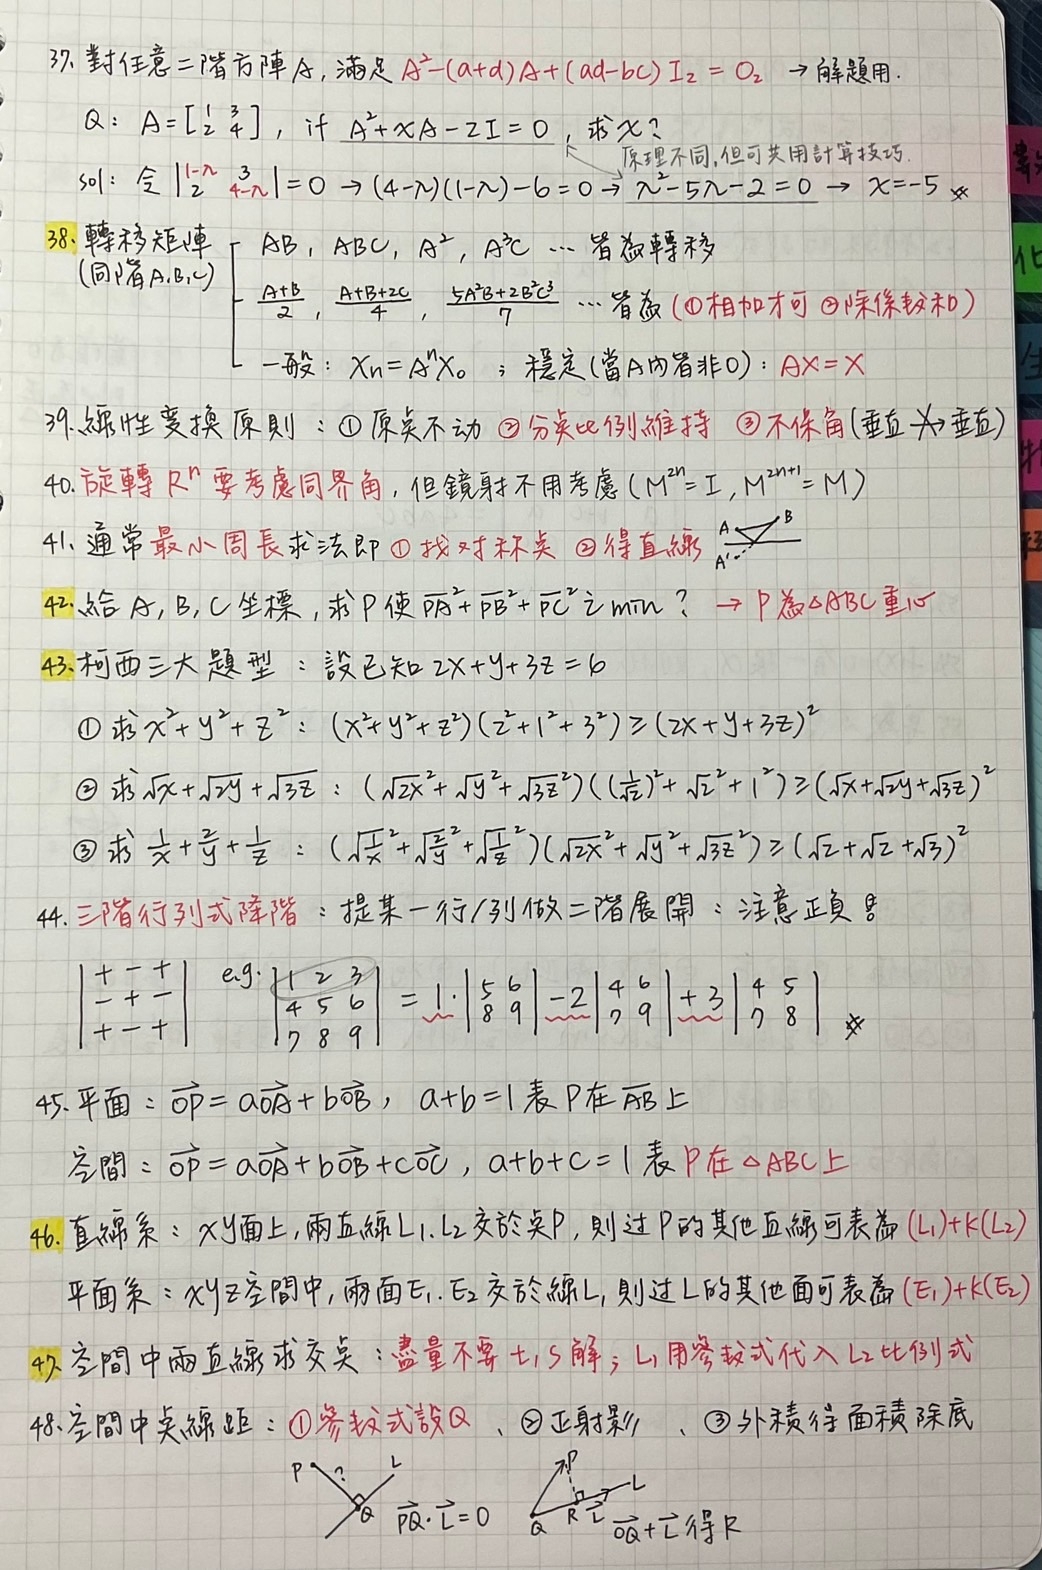 37. 對任意二階方陣A, 滿足 A²-(a+d)A+(ad-bc)I₂ = O₂ → 解題用.
Q: A=[1 3 2 4], if A²+xA-2I=0, 求x?
原理不同,但可共用計算技巧.
sol: 令 |1-λ 3 2 4-λ|=0 → (4-λ)(1-λ)-6=0 → λ²-5λ-2=0 → x=-5
38. 轉移矩陣 AB, ABC, A², A³C … 皆為轉移
(同階A.B.C) (A+B)/2, (A+B+2C)/4, (5A²B+2B²C³)/7 … 皆為 (①相加才可 ②除係數和)
一般: Xn=AⁿX₀ ; 穩定(當A內皆非0): AX=X
39. 線性變換原則: ①原点不动 ②分点比例維持 ③不保角(垂直 ↛ 垂直)
40. 旋轉 Rⁿ 要考慮同界角, 但鏡射不用考慮 (M²ⁿ=I, M²ⁿ⁺¹=M)
41. 通常最小周長求法即 ①找对称点 ②得直線 A B A'
42. 給A, B, C坐標, 求P使 PA²+PB²+PC² 之min? → P為△ABC重心
43. 柯西三大題型: 設已知 2x+y+3z=6
① 求x²+y²+z²: (x²+y²+z²)(2²+1²+3²) ≥ (2x+y+3z)²
② 求√x+√2y+√3z: (√2x²+√y²+√3z²)((1/√2)²+√2²+1²) ≥ (√x+√2y+√3z)²
③ 求 1/x+2/y+1/z: (√(1/x)²+√(2/y)²+√(1/z)²)(√2x²+√y²+√3z²) ≥ (√2+√2+√3)²
44. 三階行列式降階: 提某一行/列做二階展開: 注意正負!
|+ - +| e.g. |1 2 3| = 1·|5 6| -2|4 6| +3|4 5|
|- + -| |4 5 6| |8 9| |7 9| |7 8|
|+ - +| |7 8 9|
45. 平面: OP=aOA+bOB, a+b=1 表P在AB上
空間: OP=aOA+bOB+cOC, a+b+c=1 表P在△ABC上
46. 直線系: xy面上, 兩直線L₁.L₂交於点P, 則过P的其他直線可表為 (L₁)+k(L₂)
平面系: xyz空間中, 兩面E₁.E₂交於線L, 則过L的其他面可表為 (E₁)+k(E₂)
47. 空間中兩直線求交点: 盡量不要t, s解; L₁用參数式代入L₂比例式
48. 空間中点線距: ①參数式設Q、②正射影、③外積得面積除底
P ? L Q PQ·L=0 P Q R L L OQ+L得R